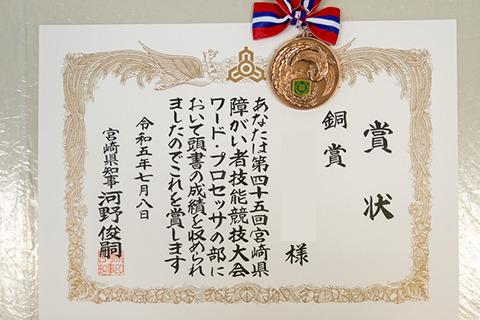 賞状
銅賞
様
あなたは第四十五回宮崎県
障がい者技能競技大会
ワード・プロセッサの部に
おいて頭書の成績を収められ
ましたのでこれを賞します
令和五年七月八日
宮崎県知事 河野俊嗣